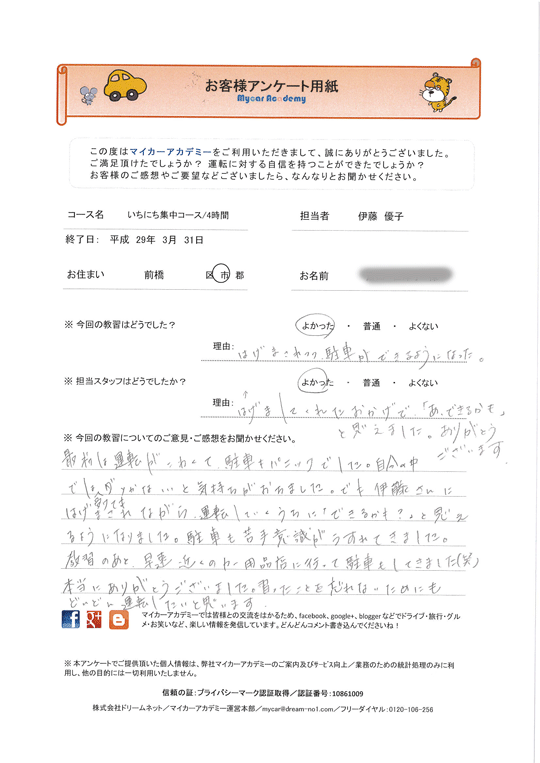 お客様アンケート用紙
Mycar Academy
この度はマイカーアカデミーをご利用いただきまして、誠にありがとうございました。
ご満足頂けたでしょうか？ 運転に対する自信を持つことができたでしょうか？
お客様のご感想やご要望などございましたら、なんなりとお聞かせください。
コース名 いちにち集中コース/4時間 担当者 伊藤 優子
終了日： 平成 29年 3月 31日
お住まい 前橋 区 市 郡 お名前
※ 今回の教習はどうでした？ よかった ・ 普通 ・ よくない
理由： はげまされつつ、駐車ができるようになった。
※ 担当スタッフはどうでしたか？ よかった ・ 普通 ・ よくない
理由： はげましてくれたおかげで、「あ、できるかも」
と思えました。ありがとう
ございます
※ 今回の教習についてのご意見・ご感想をお聞かせください。
最初は運転がこわくて、駐車もパニックでした。自分の中
ではダメかなぁいと気持ちがおちました。でも伊藤さんに
はげまされながら、運転していくうちに「できるかも？」と思え
るようになりました。駐車も苦手意識がうすれてきました。
教習のあと、早速近くのカー用品店に行って駐車もしてきました(笑)
本当にありがとうございました。習ったことを忘れないためにも
どんどん運転したいと思います。
マイカーアカデミーでは皆様との交流をはかるため、facebook、google+、blogger などでドライブ・旅行・グル
メ・お笑いなど、楽しい情報を発信しています。どんどんコメント書き込んでくださいね！
※ 本アンケートでご提供頂いた個人情報は、弊社マイカーアカデミーのご案内及びサービス向上／業務のための統計処理のみに利
用し、他の目的には一切利用いたしません。
信頼の証：プライバシーマーク認証取得／認証番号：10861009
株式会社ドリームネット／マイカーアカデミー運営本部／mycar@dream-no1.com／フリーダイヤル：0120-106-256